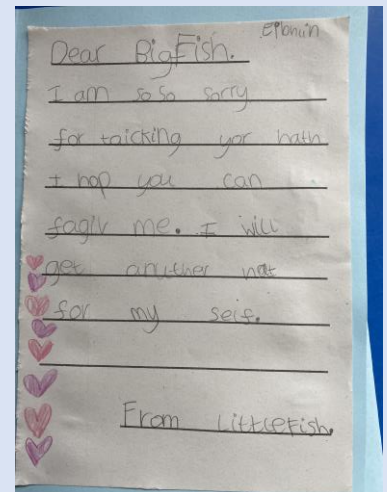 Eibhnin
Dear BigFish.
I am so so sorry
for taicking yor hath
I hop you can
fagiv me. I will
get anuther hat
for my seif.
From LittleFish.